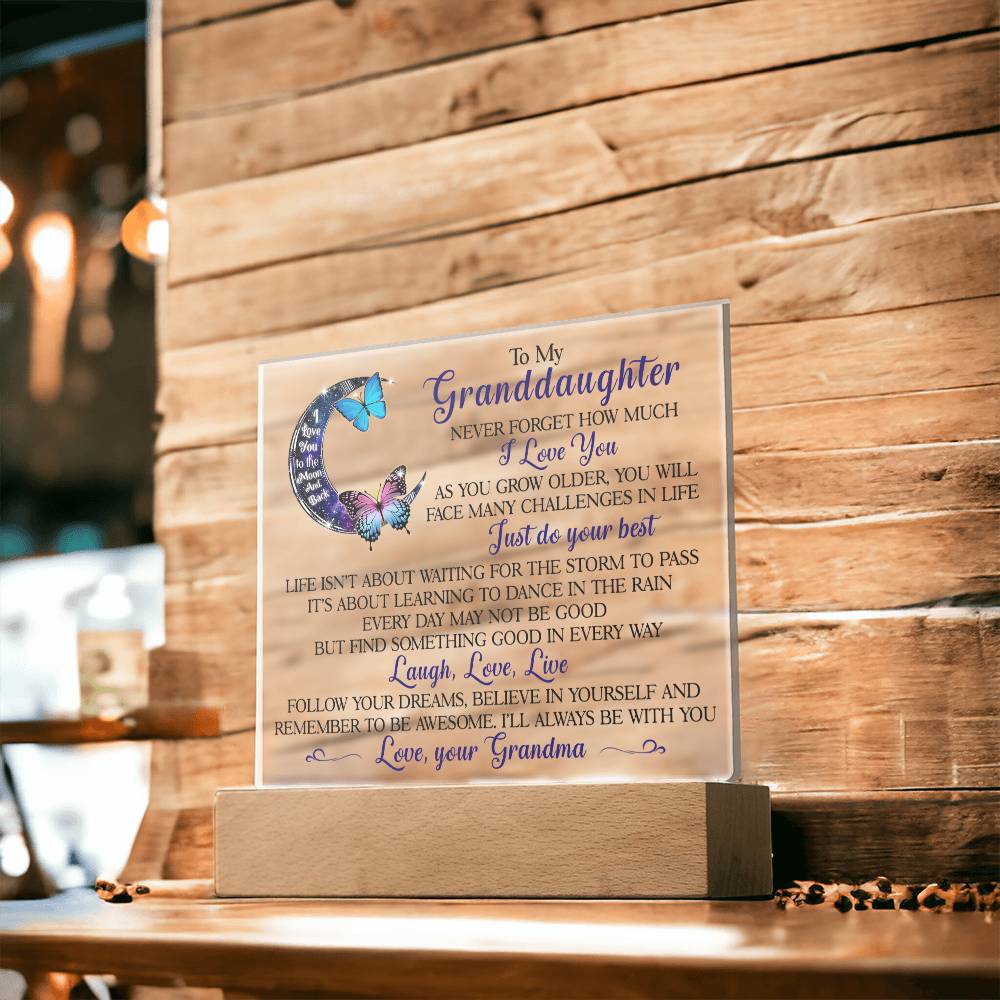 To My
Granddaughter
NEVER FORGET HOW MUCH
I Love You
AS YOU GROW OLDER, YOU WILL
FACE MANY CHALLENGES IN LIFE
Just do your best
I
Love
You
to the
Moon
And
Back
LIFE ISN'T ABOUT WAITING FOR THE STORM TO PASS
IT'S ABOUT LEARNING TO DANCE IN THE RAIN
EVERY DAY MAY NOT BE GOOD
BUT FIND SOMETHING GOOD IN EVERY WAY
Laugh, Love, Live
FOLLOW YOUR DREAMS, BELIEVE IN YOURSELF AND
REMEMBER TO BE AWESOME. I'LL ALWAYS BE WITH YOU
Love, your Grandma